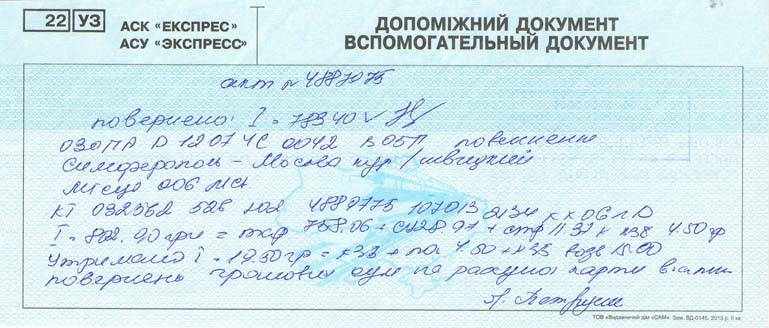 22 УЗ
АСК «ЕКСПРЕС»
АСУ «ЭКСПРЕСС»
ДОПОМІЖНИЙ ДОКУМЕНТ
ВСПОМОГАТЕЛЬНЫЙ ДОКУМЕНТ
акт N 4887075
повернено: І = 78340
ОЗОПА D 1207 ЧС 0042 В 05П повернення
Симферополь - Москва кур/швидкий
місце 006 мсн
КТ 032562 528 4889775 107013 2134
І = 802.90 грн = тар 758.06 + стр 4.50 гр
Утримано І = 19.50 гр = + по. 4.50 + возв 15.00
повернено грошових сум на рахунок карти
ТОВ «Видавничий дім «САМ». Зам. ВД-0145. 2013 р. ІІ кв.